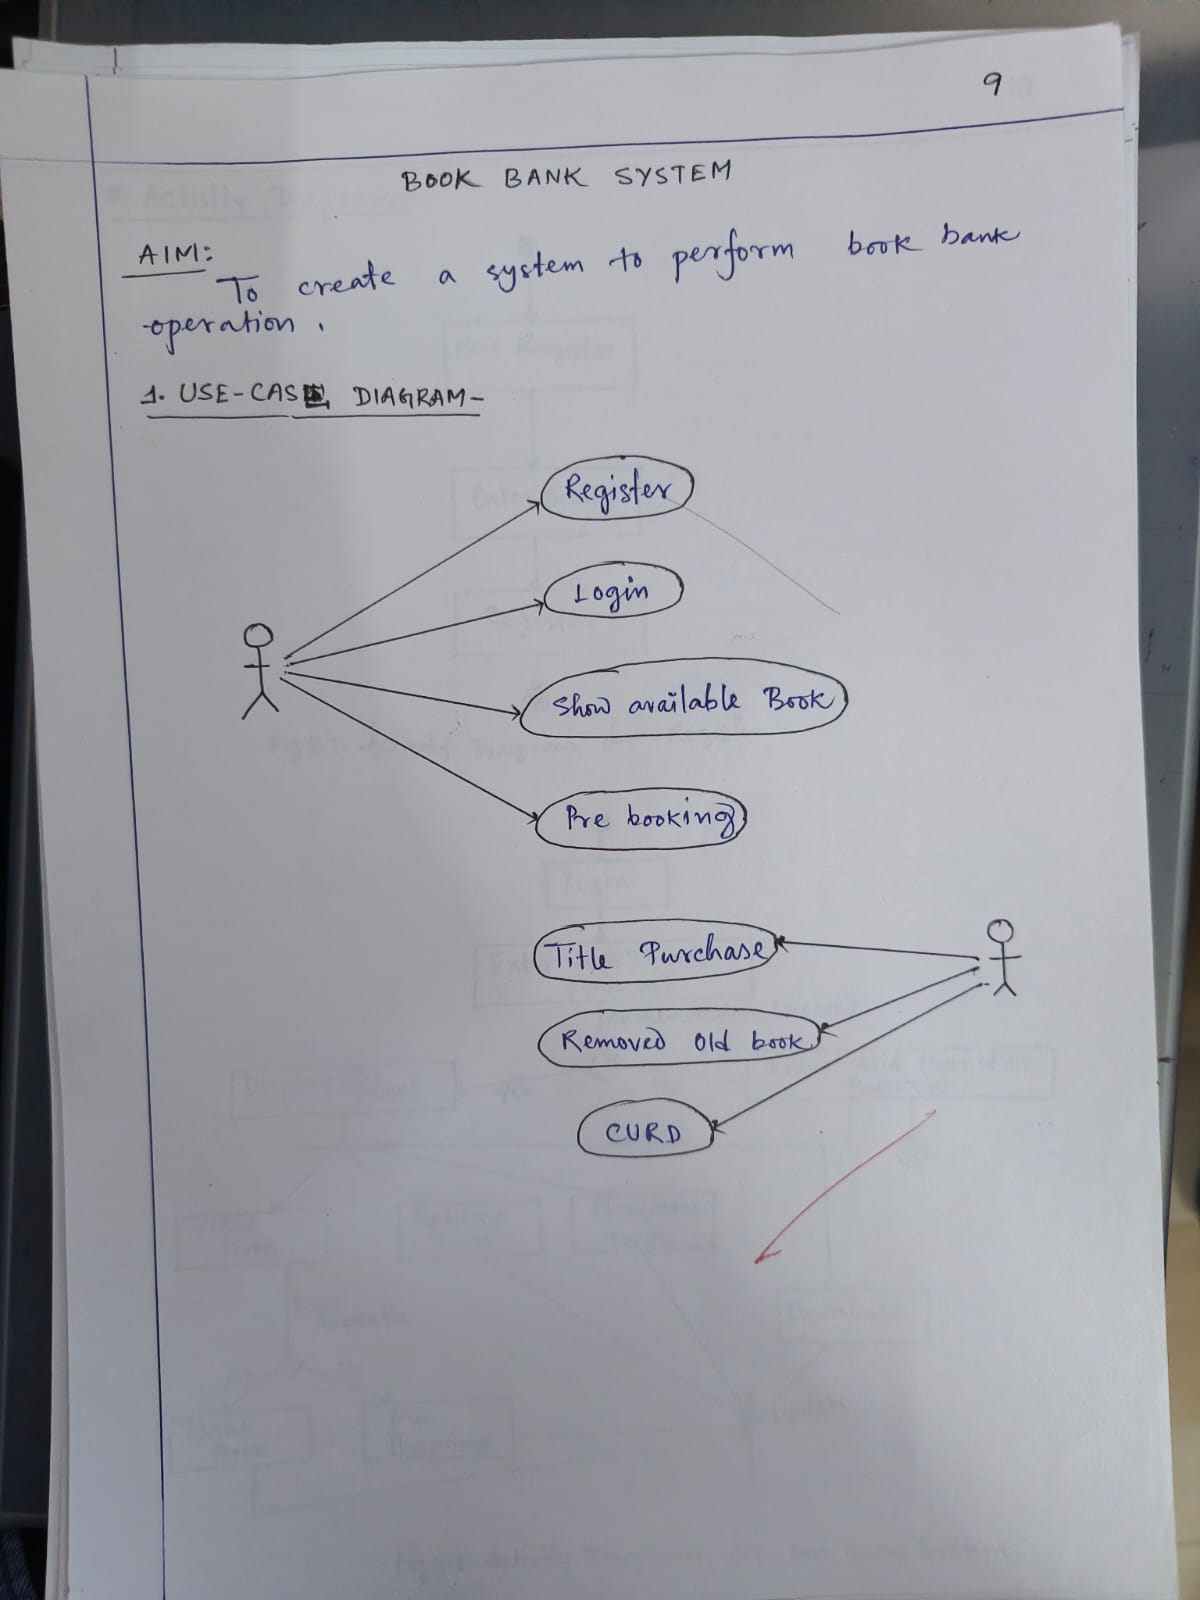 9
BOOK BANK SYSTEM
AIM:
To create a system to perform book bank
operation.
1. USE-CASE DIAGRAM-
Register
Login
Show available Book
Pre booking
Title Purchase
Removed Old book
CURD